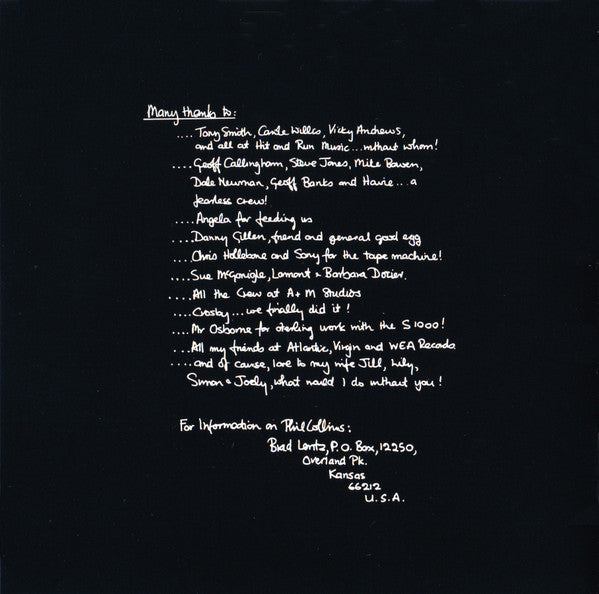 Many thanks to:
....Tony Smith, Carole Willco, Vicky Andrews,
and all at Hit and Run Music...without whom!
....Geoff Callingham, Steve Jones, Mike Bowen,
Dale Newman, Geoff Banks and Howie....a
fearless crew!
....Angela for feeding us
....Danny Gillen, friend and general good egg
....Chris Hollebone and Sony for the tape machine!
....Sue McGonigle, Lamont + Barbara Dozier.
....All the Crew at A+M Studios
....Crosby...we finally did it!
....Mr Osborne for sterling work with the S1000!
....All my friends at Atlantic, Virgin and WEA Records
....and of course, love to my wife Jill, Lily,
Simon + Joely, what would I do without you!
For Information on Phil Collins:
Brad Lentz, P.O. Box, 12250,
Overland Pk.
Kansas
66212
U.S.A.